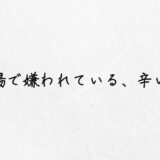 場で嫌われている、辛い